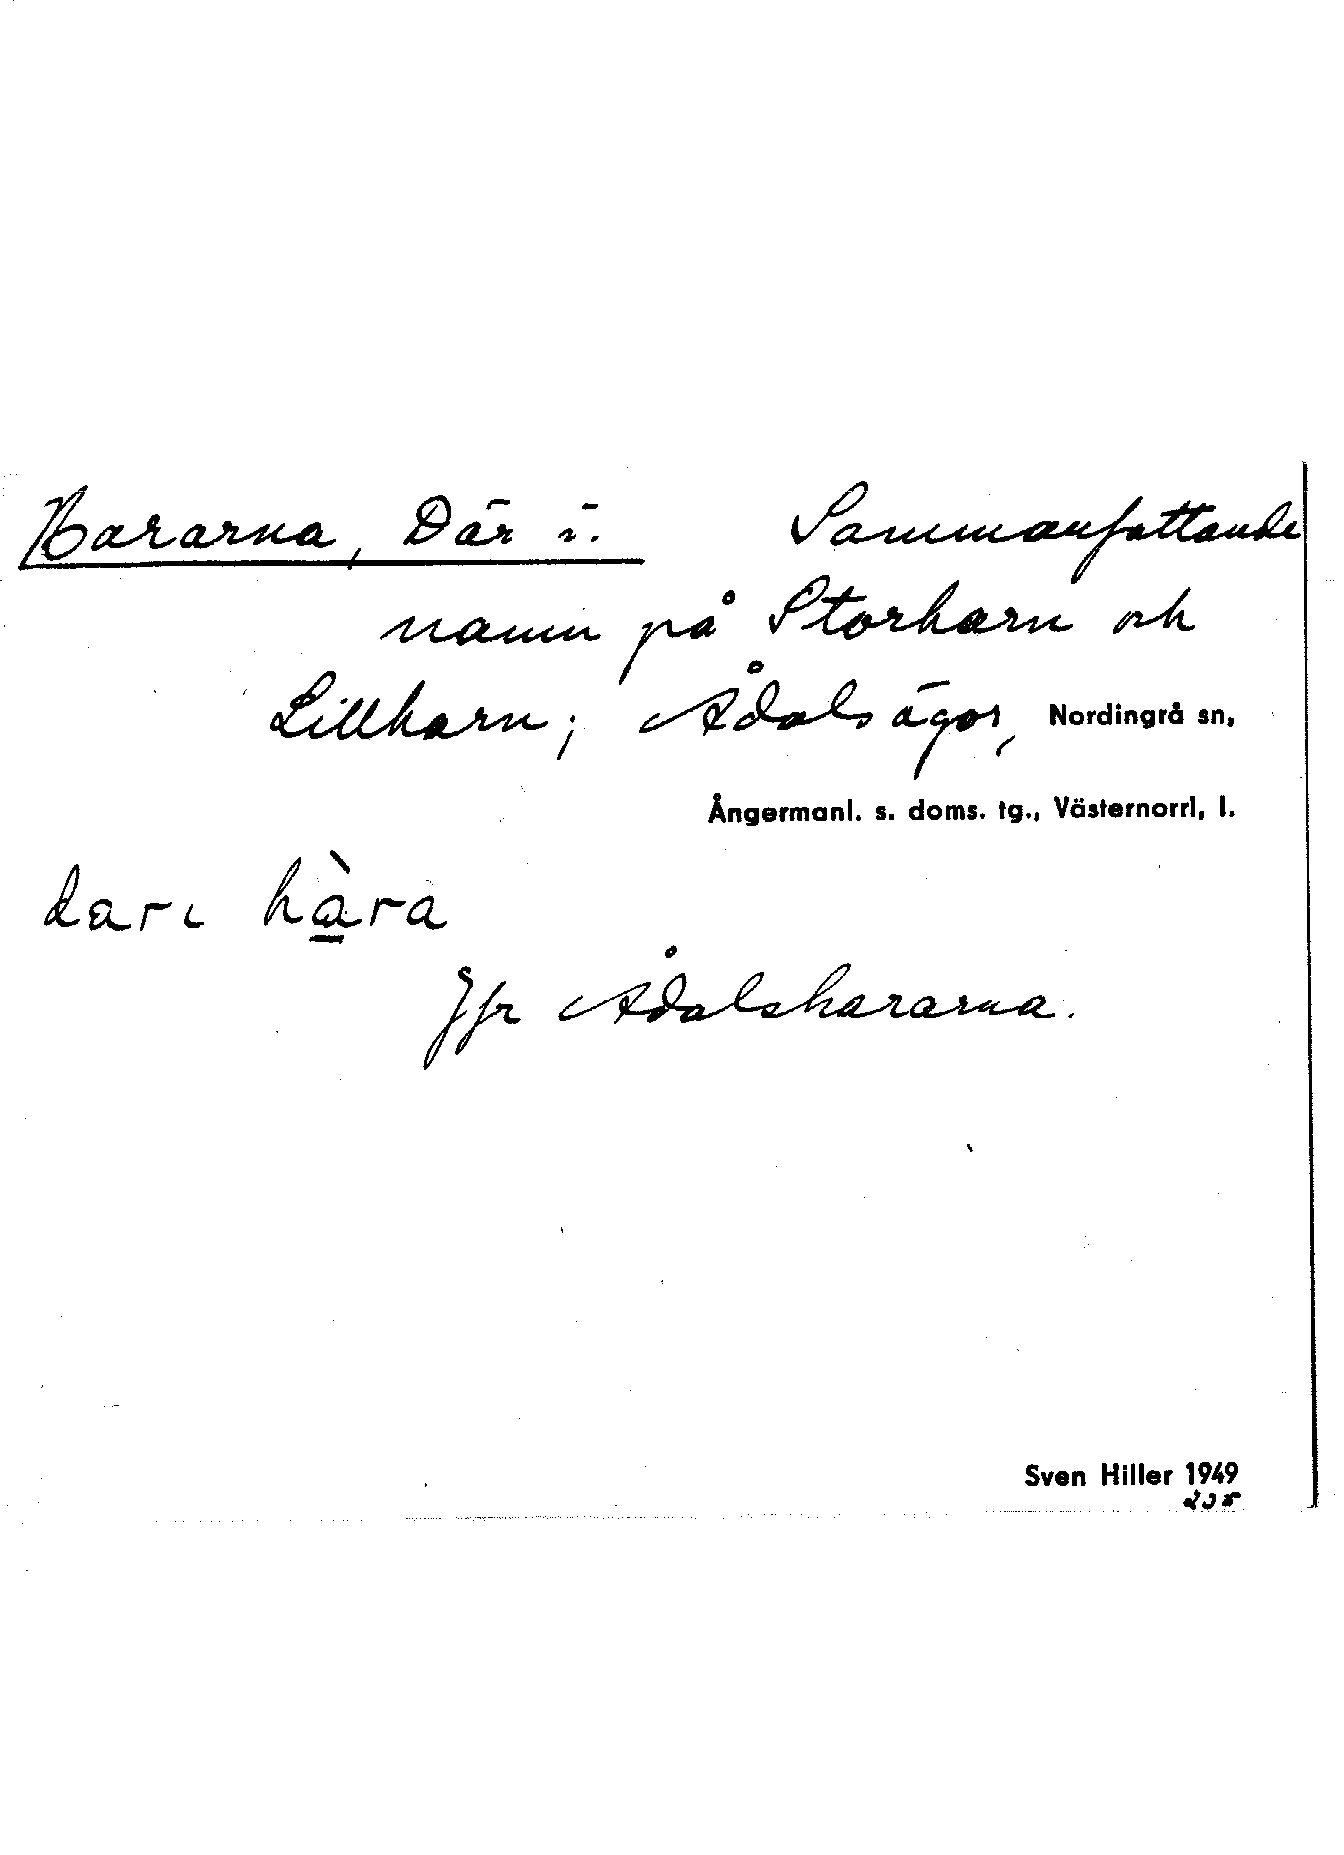 Hararna, Där i. Sammanfattande
namn på Storharn och
Lillharn; Ådals ägor, Nordingrå sn,
Ångermanl. s. doms. tg., Västernorrl, l.
darɩ hàra
Jfr Ådalshararna.
Sven Hiller 1949